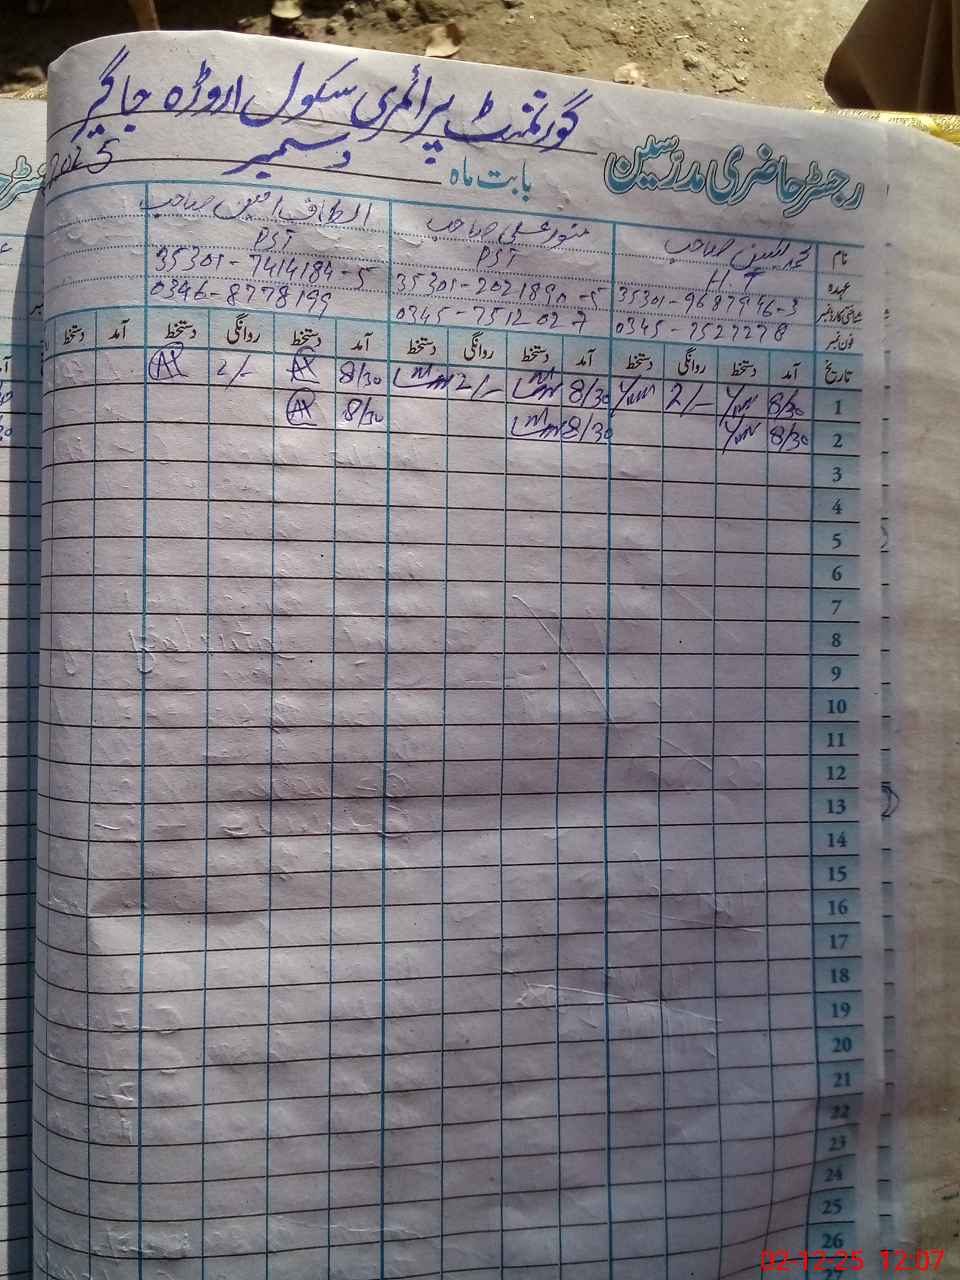 گورنمنٹ پرائمری سکول اروڑہ جاگیر
رجسٹر حاضری مدرسین بابت ماہ دسمبر 2025
نام محمد یٰسین صاحب منور علی صاحب الطاف امین صاحب
عہدہ H.T PST PST
شناختی کارڈ نمبر 35301-9687946-3 35301-2021890-5 35301-7414184-5
فون نمبر 0345-7527278 0345-7512027 0346-8778199
تاریخ آمد دستخط روانگی دستخط آمد دستخط روانگی دستخط آمد دستخط روانگی دستخط آمد دستخط
1 8/30 2/- 8/30 2/- 8/30 2/-
2 8/30 8/30 8/30
3
4
5
6
7
8
9
10
11
12
13
14
15
16
17
18
19
20
21
22
23
24
25
26
27
02-12-25 12:07